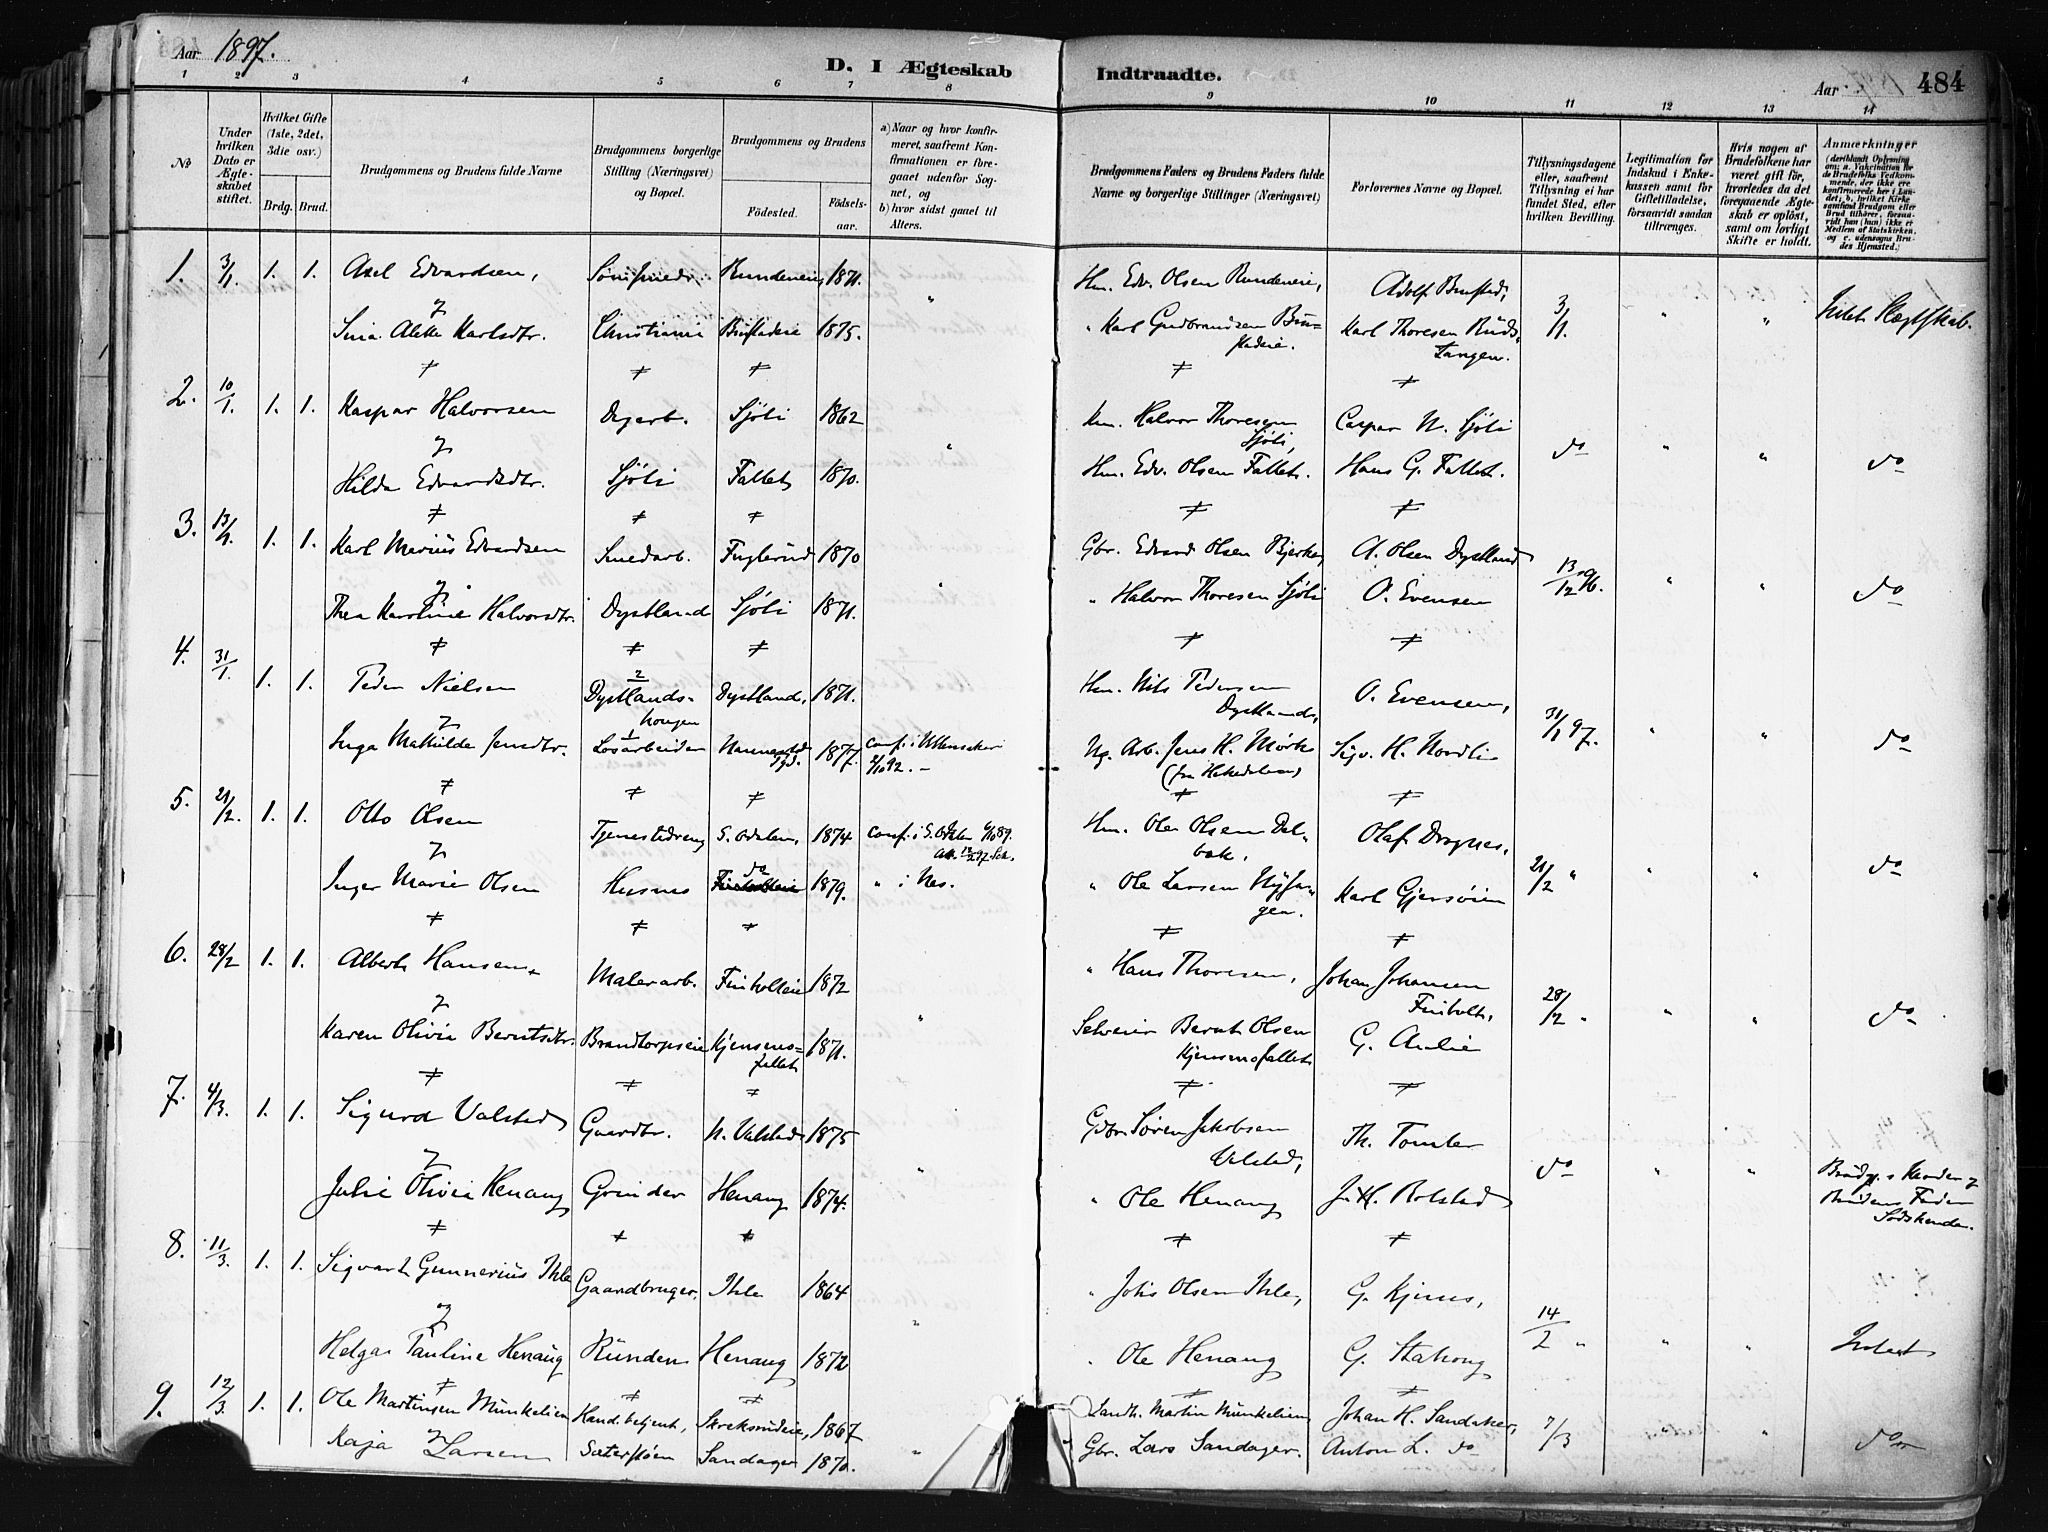 Aar 1897.
D. I Ægteskab Indtraadte.
Aar 484
1 2 3 4 5 6 7 8 9 10 11 12 13 14
№
Under hvilken Dato er Ægteskabet stiftet.
Hvilket Gifte (1ste, 2det, 3die osv.)
Brdg. Brud.
Brudgommens og Brudens fulde Navne
Brudgommens borgerlige Stilling (Næringsvei) og Bopæl.
Brudgommens og Brudens
Fødested. Fødselsaar.
a) Naar og hvor konfirmeret, saafremt Konfirmationen er foregaaet udenfor Sognet, og
b) hvor sidst gaaet til Alters.
Brudgommens Faders og Brudens Faders fulde Navne og borgerlige Stillinger (Næringsvei)
Forlovernes Navne og Bopæl.
Tillysningsdagene eller, saafremt Tillysning ei har fundet Sted, efter hvilken Bevilling.
Legitimation for Indskud i Enkekassen samt for Giftetilladelse, forsaavidt saadan tiltrænges.
Hvis nogen af Brudefolkene har været gift før, hvorledes da det foregaaende Ægteskab er opløst, samt om lovligt Skifte er holdt.
Anmærkninger
(deriblandt Oplysning om: a. Vakcination for de Brudefolks Vedkommende, der ikke ere konfirmerede her i Landet; b. hvilket Kirkesamfund Brudgom eller Brud tilhører, forsaavidt han (hun) ikke er Medlem af Statskirken, og c. udensogns Brudes Hjemsted.)
1. 3/1 1. 1. Axel Edvardsen, Rundeneie 1871. " Hm. Edv. Olsen Rundeneie, Adolf Bustad, 3/1. " " Intet Slægtskab.
&
Alette Karlsdtr. Christiania Bustadeie 1875. " Karl Gudbrandsen Bustadeie. Karl Thoresen Rudstangen.
2. 10/1. 1. 1. Kaspar Halvorsen Dagarb. Sjøli 1862 " Hm. Halvor Thoresen Sjøli, Caspar N. Sjøli do " " do
&
Hilda Edvardsdtr. Sjøli Fallet 1870. Hm. Edv. Olsen Fallet. Hans G. Fallet.
3. 13/1. 1. 1. Karl Marius Edvardsen Smedarb. Fuglerud 1870 " Gbr. Edvard Olsen Bjerke, A. Olsen Dystland 13/12 96. " " do
&
Thea Karoline Halvorsdtr. Dystland Sjøli 1871. " Halvor Thoresen Sjøli O. Evensen
4. 31/1. 1. 1. Peder Nielsen Dystlandshougen Dystland, 1871. Hm. Nils Pedersen Dystlands, O. Evensen, 31/1 97. " " do
&
Inga Mathilde Jensdtr. Løsarbeider Nannestad 1877. conf. i Ullensaker 92. Ng. Arb. Jens H. Mørk Sigv. H. Nordli
5. 21/2. 1. 1. Otto Olsen Tjenestedreng S. Odalen, 1874 conf. i S. Odalen 89. Hm. Ole Olsen Dalbak, Olaf Dragnes, 21/2 " " " do
&
Inger Marie Olsen Husmo do 1879. " i Nes. " Ole Larsen Nyhagen. Karl Gjersøien
6. 28/2 1. 1. Albert Hansen Malerarb. Finholteie 1872 " " Hans Thoresen, Johan Johansen Finholt, 28/2 " " " do
&
Karen Olivia Berntsdtr. Brandtorpseie Kjensmofallet 1871. Selveier Bernt Olsen Kjensmofallet G. Aulie
7. 4/3. 1. 1. Sigurd Valstad Gaardbr. N. Valstad 1875 " Gbr. Søren Jakobsen Valstad, Th. Tomter do " " Brudg.s Moder & Brudens Fader Sødskende.
&
Julie Olivia Henaug Grinder Henaug 1874. " Ole Henaug J. H. Rolstad
8. 11/3. 1. 1. Sigvart Gunnerius Ihle Gaardbruger. Ihle 1864 " " Johs Olsen Ihle, G. Kjernes, 14/2 " " " Intet
&
Helga Pauline Henaug Runden Henaug 1872 " Ole Henaug G. Stahaug
9. 12/3. 1. 1. Ole Martinsen Munkelien Handl.betjent, 1867 " Landh. Martin Munkelien Johan H. Sandaker, 7/3 " " do
&
Kaja Larsen Sæterstøen Sandager 1870. Gbr. Lars Sandager. Anton L. do